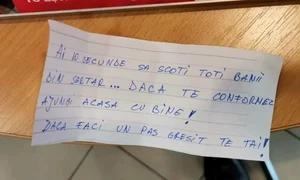 AI 10 SECUNDE SA SCOTI TOTI BANII
DIN SERTAR... DACA TE CONFORMEZI
AJUNGI ACASA CU BINE!
DACA FACI UN PAS GRESIT TE TAI!